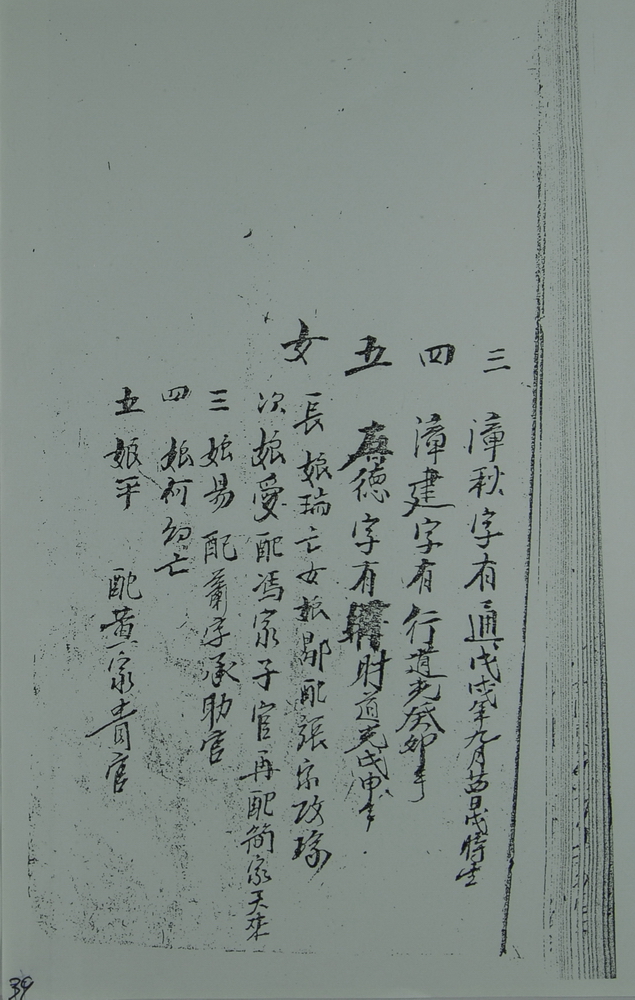 三 漳秋字有通戊戌年九月廿日戌時生
四 漳建字有行道光癸卯年
五 德字有財道光戊申年
女
長娘瑞亡女娘配張宗攻瑜
次娘愛配馮家子官再配簡家天來
三娘易配蕭字承助官
四娘何幼亡
五娘平 配黃家青官
39